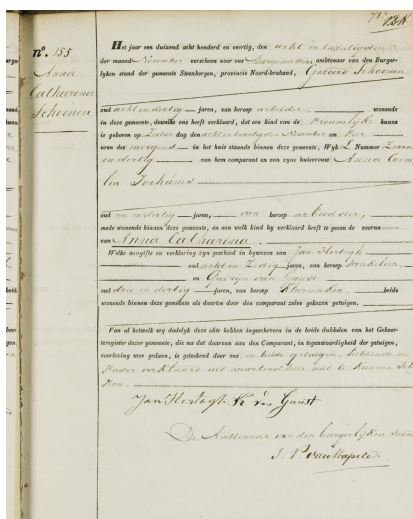 n°. 155
Anna
Catharina
Schoonen
Het jaar een duizend acht honderd en veertig, den acht en twintigsten
der maand November verscheen voor ons Burgemeester ambtenaar van den Burger-
lyken stand der gemeente Steenbergen, provincie Noord-braband, Gerard Schoonen
oud acht en dertig jaren, van beroep arbeider, wonende
in deze gemeente, dewelke ons heeft verklaard, dat een kind van de Vrouwelijke kunne
is geboren op Zatur dag den acht en twintigsten November om Vier
uren des morgens in het huis staande binnen deze gemeente, Wyk L Nummer Zeven
en dertig van hem comparant en van zyne huisvrouw Anna Corne
lia Jochums
oud en dertig jaren, van beroep arbeidster,
mede wonende binnen deze gemeente, en aan welk kind hy verklaard heeft te geven de voornamen
van Anna Catharina.
Welke aangifte en verklaring zyn geschied in bywezen van Jan Hertogh
oud acht en jaren, van beroep
en van Gunst
oud drie en dertig jaren, van beroep Kleermaker, beide
wonende binnen deze gemeente als daartoe door den comparant zelve gekozen getuigen.
Van al hetwelk wy dadelyk deze akte hebben ingeschreven in de beide dubbelen van het Geboor-
teregister dezer gemeente, die na dat daarvan aan den Comparant, in tegenwoordigheid der getuigen,
voorlezing was gedaan, is geteekend door ons en beide getuigen, hebbende de
Vader verklaard uit onwetendheid niet te kunnen Schry
ven.
Jan Hertogh van Gunst
De Ambtenaar van den burgerlyken Stand
J. P. van Kapel